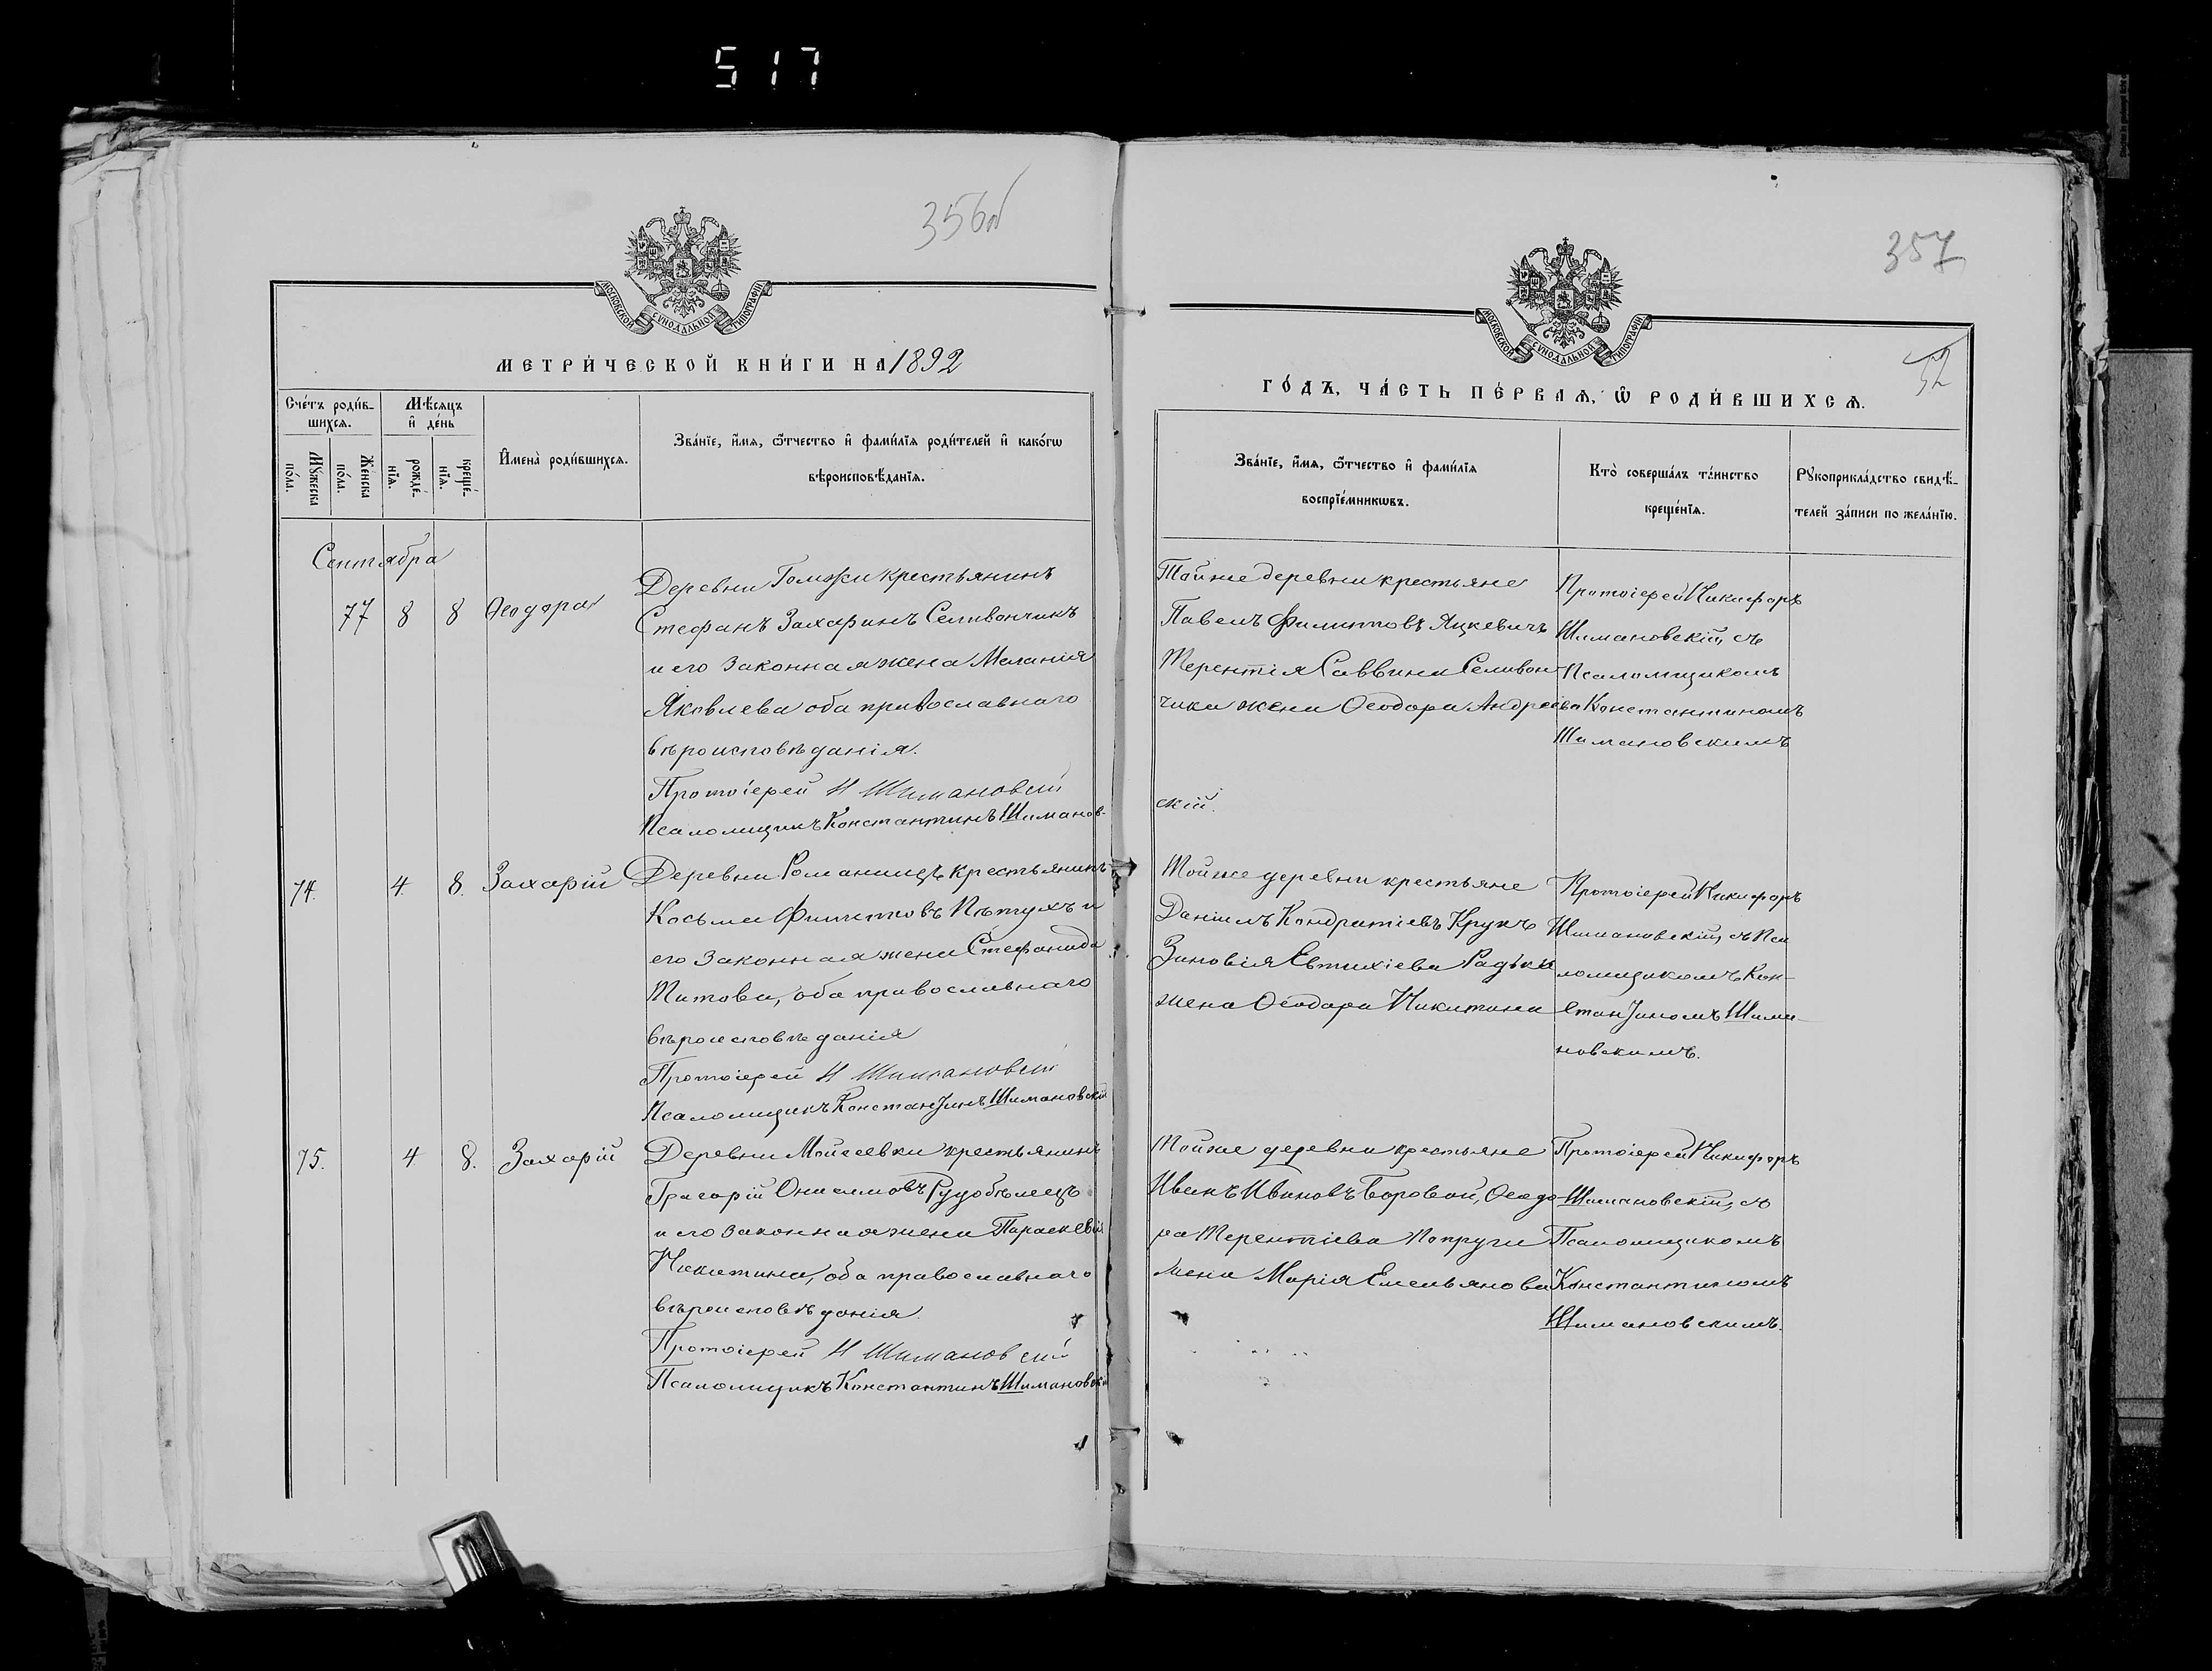 517
356об
МОСКОВСКОЙ СѴНОДАЛЬНОЙ ТИПОГРАФІИ
МЕТРИ́ЧЕСКОЙ КНИ́ГИ НА 1892
Сче́тъ роди́в-
шихсѧ.
Мѣ́сяцъ
и҆ де́нь
И҆мена̀ роди́вшихсѧ.
Зва́нїе, и҆́мѧ, ѻ҆́тчество и҆ фами́лїѧ роди́телей и҆ како́гѡ
вѣроисповѣ́данїѧ.
Мꙋ́жеска
по́ла.
Же́нска
по́ла.
рожде́-
нїѧ.
креще́-
нїѧ.
Сентября
77 8 8 Ѳеодора
Деревни Гомжи крестьянинъ
Стефанъ Захаринъ Селивончикъ
и его законная жена Меланія
Яковлева оба православнаго
вѣроисповѣданія.
Протоіерей Н Шимановскій
Псаломщикъ Константинъ Шиманов-
74. 4. 8. Захарій
Деревни Романищъ крестьянинъ
Косьма Филиповъ Пѣтухъ и
его законная жена Стефанида
Титова, оба православнаго
вѣроисповѣданія
Протоіерей Н Шимановскій
Псаломщикъ Константинъ Шимановскій
75. 4 8. Захарій
Деревни Мойсеевки крестьянинъ
Григорій Онисимовъ Рудобѣлецъ
и его законная жена Параскевія
Никитина, оба православнаго
вѣроисповѣданія.
Протоіерей Н Шимановскій
Псаломщикъ Константинъ Шимановскій
357
52
МОСКОВСКОЙ СѴНОДАЛЬНОЙ ТИПОГРАФІИ
ГО́ДЪ, ЧА́СТЬ ПЕ́РВАѦ, Ѡ҆ РОДИ́ВШИХСѦ.
Зва́нїе, и҆́мѧ, ѻ҆́тчество и҆ фами́лїѧ
воспрїе́мникѡвъ.
Кто̀ соверша́лъ та́инство
креще́нїѧ.
Рꙋкоприкла́дство свидѣ́-
телей за́писи по жела́нїю.
Тойже деревни крестьяне
Павелъ Филиповъ Яцкевичъ
Терентія Саввина Селивон
чика жена Ѳеодора Андреева
скій.
Протоіерей Никифоръ
Шимановскій, съ
Псаломщикомъ
Константиномъ
Шимановскимъ
Тойже деревни крестьяне
Даніилъ Кондратіевъ Крукъ
Зиновія Евтихіева Радька
жена Ѳеодора Никитина
Протоіерей Никифоръ
Шимановскій, съ Пса
ломщикомъ Кон-
стантиномъ Шима-
новскимъ.
Тойже деревни крестьяне
Иванъ Ивановъ Боровой, Ѳеодо
ра Терентіева Попруги
жена Марія Емельянова
Протоіерей Никифоръ
Шимановскій, съ
Псаломщикомъ
Константиномъ
Шимановскимъ.